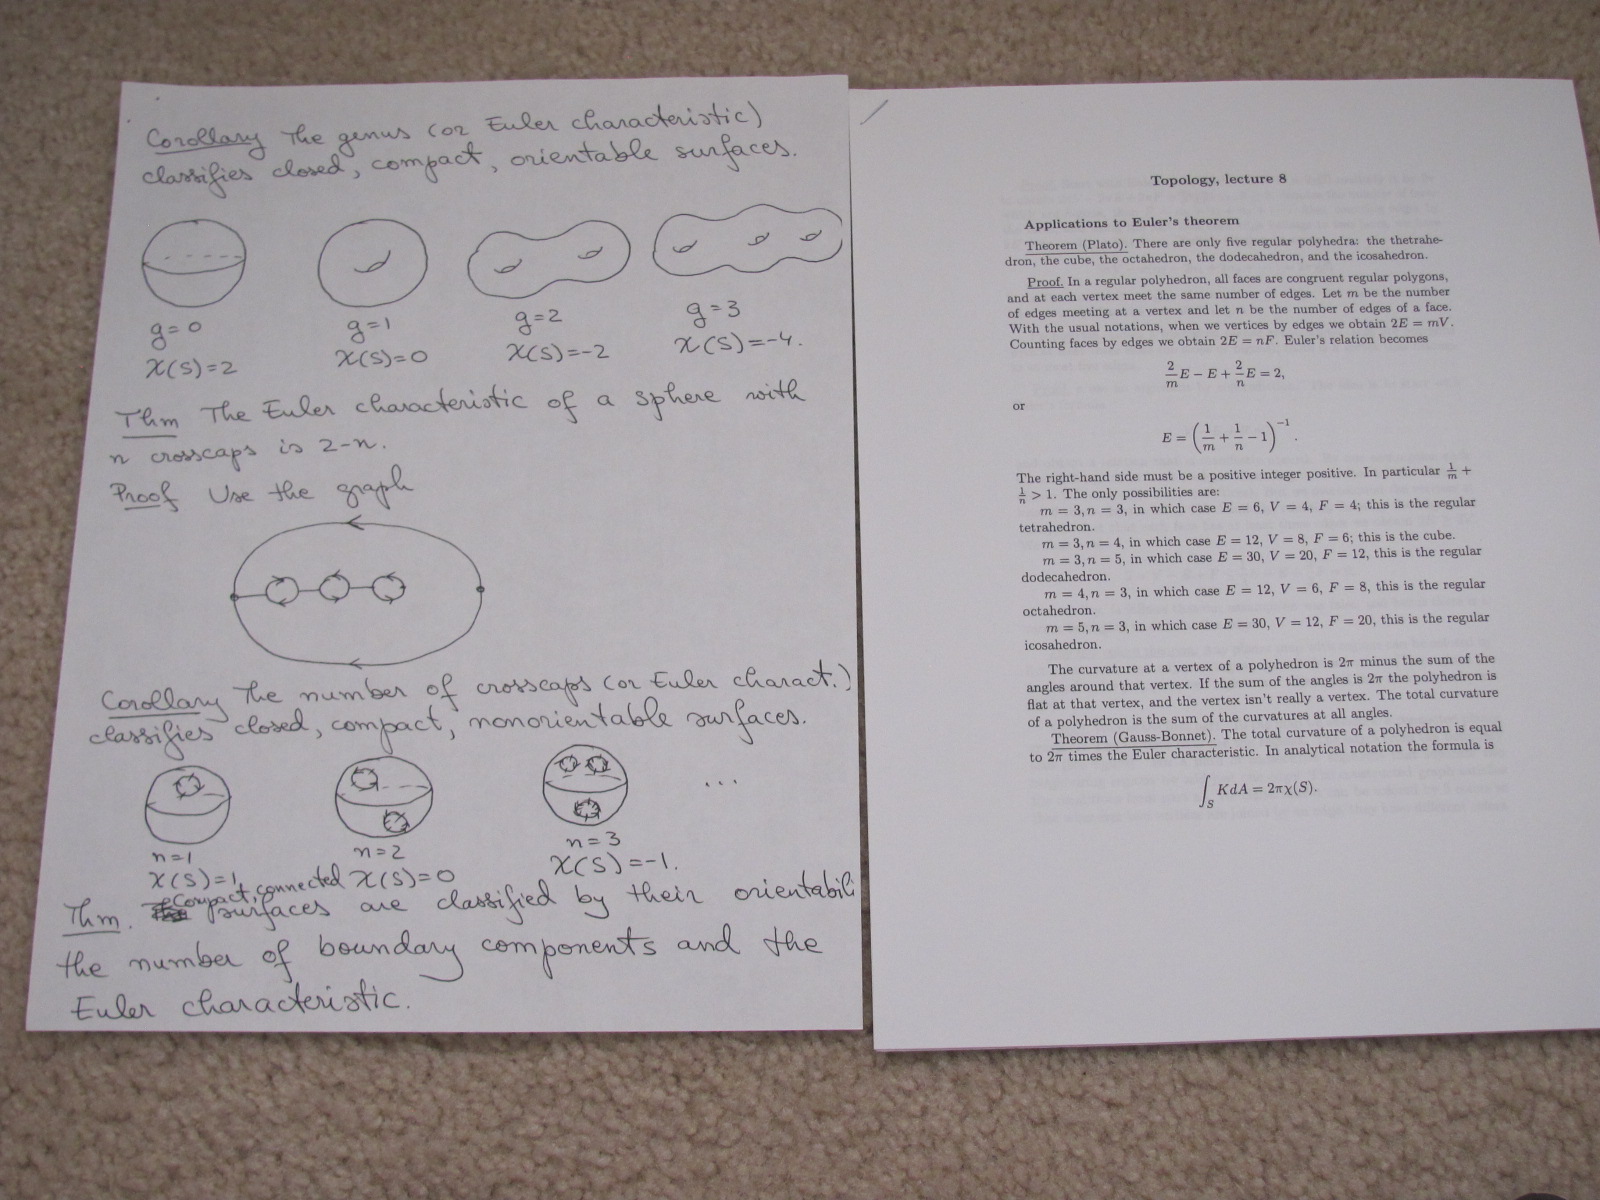 Corollary The genus (or Euler characteristic)
classifies closed, compact, orientable surfaces.
g=0
χ(S)=2
g=1
χ(S)=0
g=2
χ(S)=-2
g=3
χ(S)=-4.
Thm The Euler characteristic of a sphere with
n crosscaps is 2-n.
Proof Use the graph
Corollary The number of crosscaps (or Euler charact.)
classifies closed, compact, nonorientable surfaces.
n=1
χ(S)=1
n=2
χ(S)=0
n=3
χ(S)=-1.
...
Thm. Compact, connected surfaces are classified by their orientabili
the number of boundary components and the
Euler characteristic.
Topology, lecture 8
Applications to Euler's theorem
Theorem (Plato). There are only five regular polyhedra: the thetrahe-
dron, the cube, the octahedron, the dodecahedron, and the icosahedron.
Proof. In a regular polyhedron, all faces are congruent regular polygons,
and at each vertex meet the same number of edges. Let m be the number
of edges meeting at a vertex and let n be the number of edges of a face.
With the usual notations, when we vertices by edges we obtain 2E = mV.
Counting faces by edges we obtain 2E = nF. Euler's relation becomes
2/m E − E + 2/n E = 2,
or
E = (1/m + 1/n − 1)^−1.
The right-hand side must be a positive integer positive. In particular 1/m +
1/n > 1. The only possibilities are:
m = 3, n = 3, in which case E = 6, V = 4, F = 4; this is the regular
tetrahedron.
m = 3, n = 4, in which case E = 12, V = 8, F = 6; this is the cube.
m = 3, n = 5, in which case E = 30, V = 20, F = 12, this is the regular
dodecahedron.
m = 4, n = 3, in which case E = 12, V = 6, F = 8, this is the regular
octahedron.
m = 5, n = 3, in which case E = 30, V = 12, F = 20, this is the regular
icosahedron.
The curvature at a vertex of a polyhedron is 2π minus the sum of the
angles around that vertex. If the sum of the angles is 2π the polyhedron is
flat at that vertex, and the vertex isn't really a vertex. The total curvature
of a polyhedron is the sum of the curvatures at all angles.
Theorem (Gauss-Bonnet). The total curvature of a polyhedron is equal
to 2π times the Euler characteristic. In analytical notation the formula is
∫_S KdA = 2πχ(S).